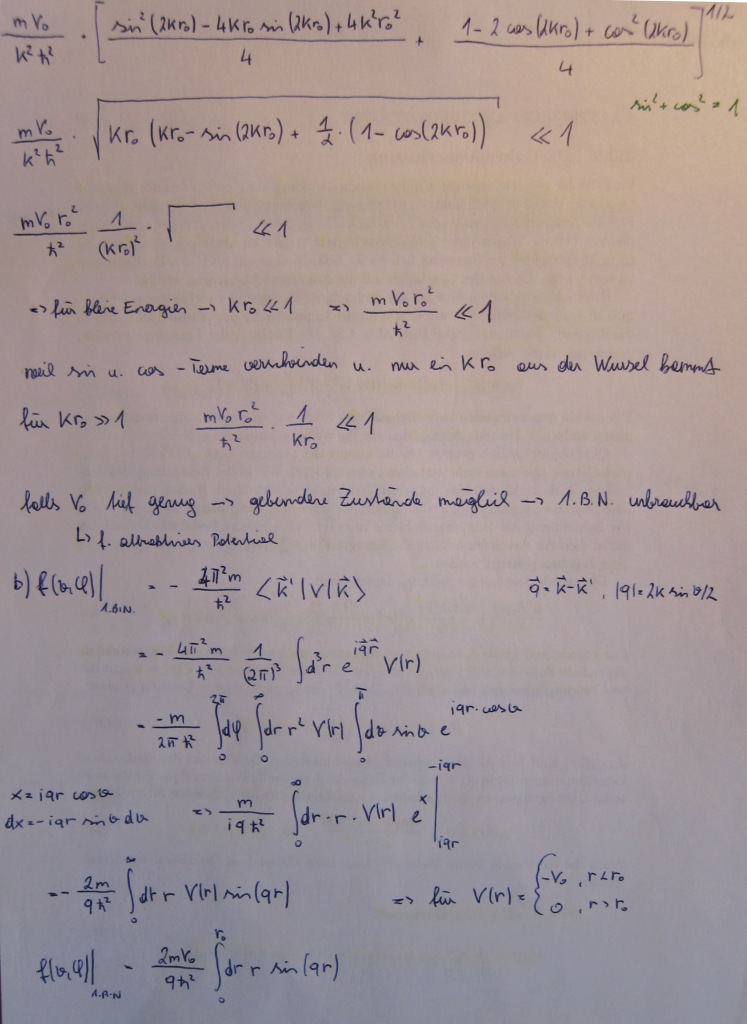 mV₀/k²ħ² · [ (sin²(2kr₀) - 4kr₀ sin(2kr₀) + 4k²r₀²)/4 + (1 - 2 cos(2kr₀) + cos²(2kr₀))/4 ]^1/2
sin² + cos² = 1
mV₀/k²ħ² · √(kr₀ (kr₀ - sin(2kr₀) + 1/2 · (1 - cos(2kr₀))) ≪ 1
mV₀r₀²/ħ² 1/(kr₀)² · √ ≪ 1
=> für kleine Energien → kr₀ ≪ 1 => mV₀r₀²/ħ² ≪ 1
weil sin u. cos - Terme verschwinden u. nur ein kr₀ aus der Wurzel kommt
für kr₀ ≫ 1 mV₀r₀²/ħ² · 1/kr₀ ≪ 1
falls V₀ tief genug → gebundene Zustände möglich → 1.B.N. unbrauchbar
↳ f. attraktives Potential
b) f(ϑ,φ)|1.B.N. = - 4π²m/ħ² ⟨k⃗'|V|k⃗⟩ q⃗ = k⃗-k⃗' , |q| = 2k sin ϑ/2
= - 4π²m/ħ² 1/(2π)³ ∫d³r e^(iq⃗r⃗) V(r)
= -m/2πħ² ∫₀^2π dφ ∫₀^∞ dr r² V(r) ∫₀^π dϑ sinϑ e^(iqr·cosϑ)
x = iqr cosϑ
dx = -iqr sinϑ dϑ => m/iqħ² ∫₀^∞ dr · r · V(r) e^x |_iqr^-iqr
= - 2m/qħ² ∫₀^∞ dr r V(r) sin(qr) => für V(r) = { -V₀ , r<r₀
0 , r>r₀
f(ϑ,φ)|1.B.N = 2mV₀/qħ² ∫₀^r₀ dr r sin(qr)